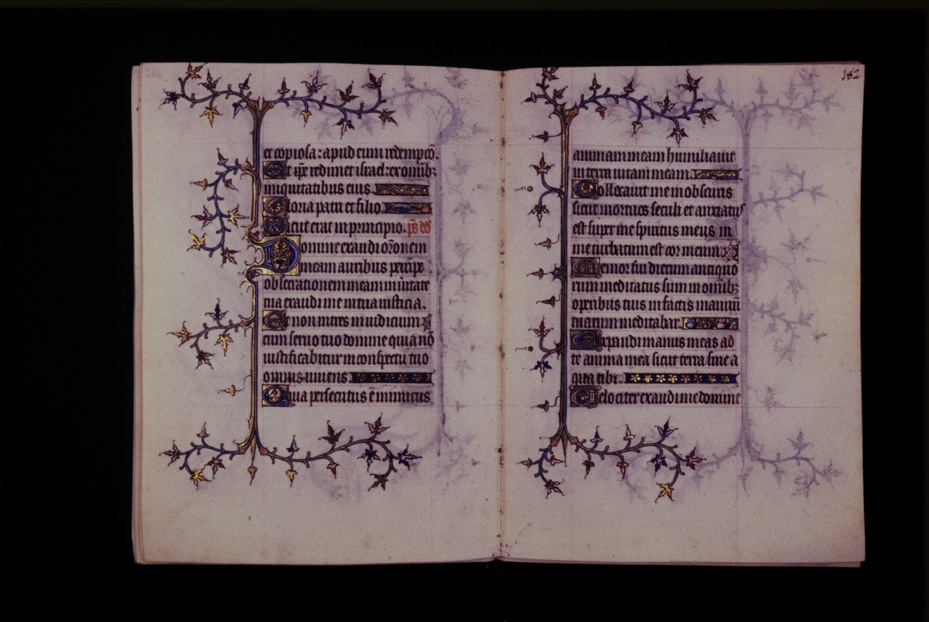 et copiosa: apud eum redempcō.
Et ip̄e redimet israel: ex omnib;
iniquitatibus eius.
Gloria patri et filio.
Sicut erat in principio. ps̄ dd
Domine exaudi orōnem
meam auribus percipe
obsecrationem meam in ūitate
tua exaudi me in tua iusticia.
Et non intres in iudicium
cum seruo tuo domine quia nō
iustificabitur in conspectu tuo
omnis uiuens.
Quia persecutus ē inimicus
182
animam meam humiliauit
in terra uitam meam.
Collocauit me in obscuris
sicut mortuos seculi et anxiatus
est super me spiritus meus in
me turbatum est cor meum.
Memor fui dierum antiquo
rum meditatus sum in omnib;
operibus tuis in factis manuū
tuarum meditabar.
Expandi manus meas ad
te anima mea sicut terra sine a
qua tibi.
Velociter exaudi me domine